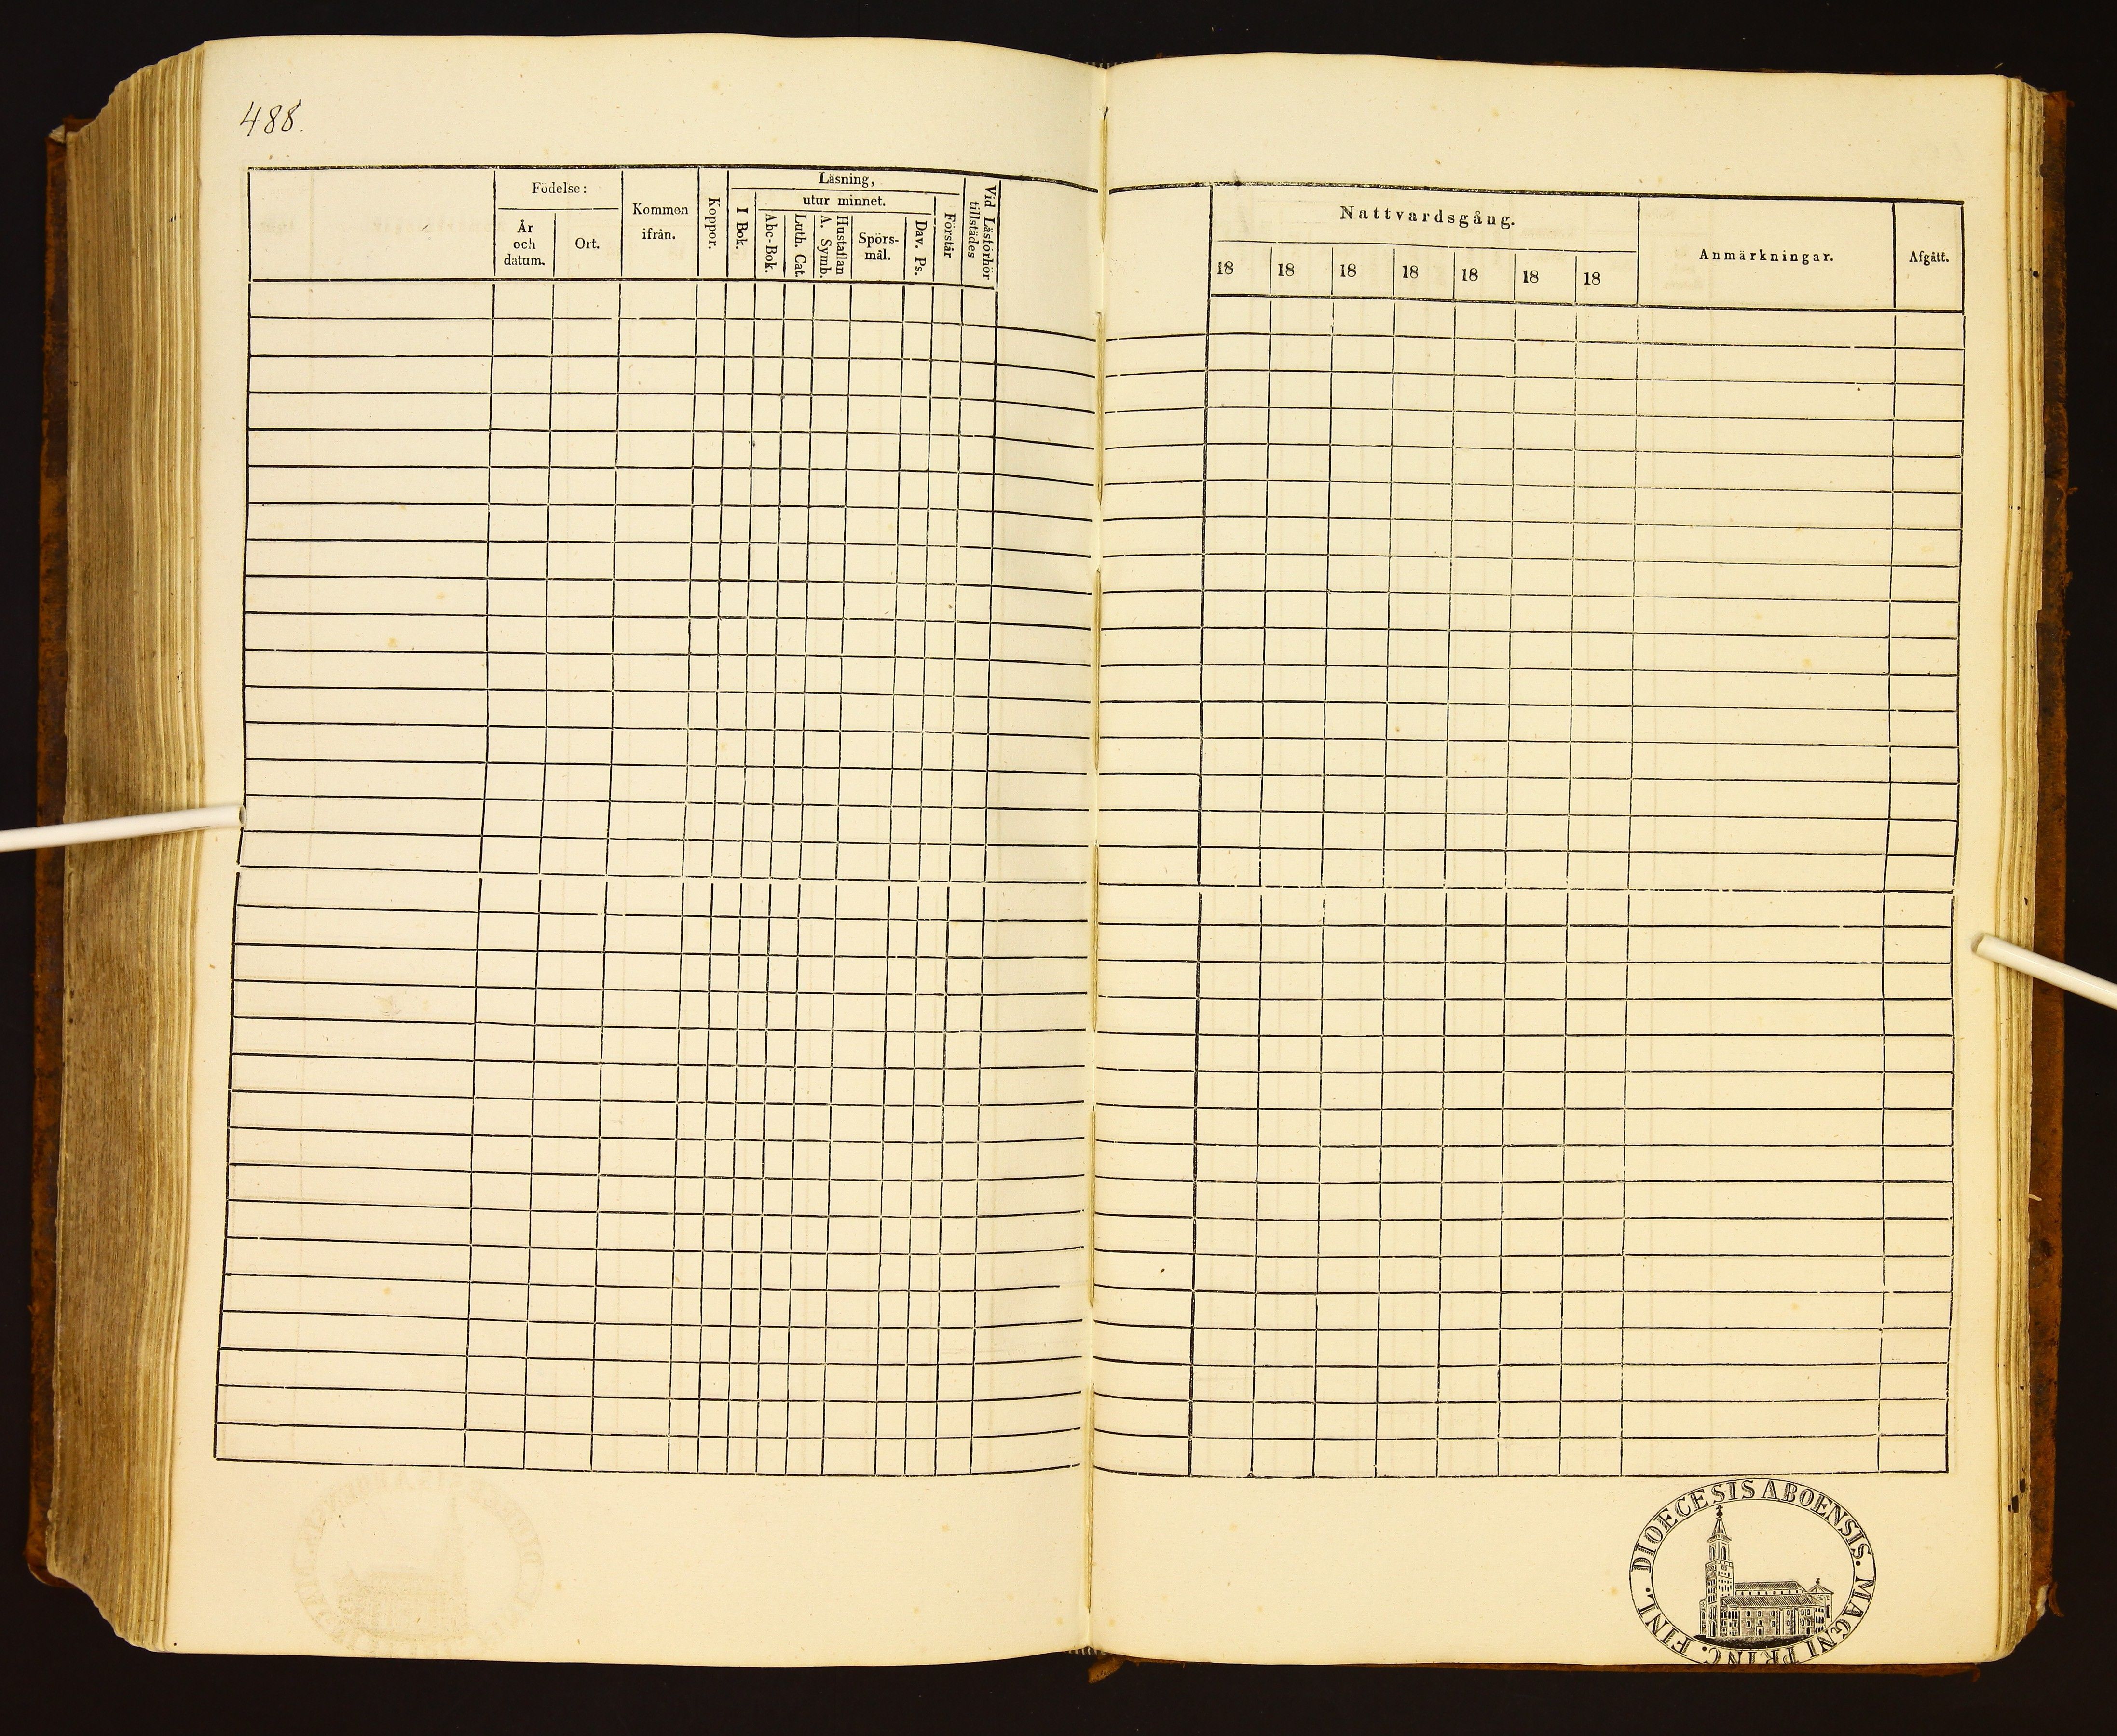 488.
Födelse:
År
och
datum.
Ort.
Kommen
ifrån.
Koppor.
Läsning,
I Bok.
utur minnet.
Abc-Bok.
Luth. Cat.
Hustaflan
A. Symb.
Spörs-
mål.
Dav. Ps.
Förstår
Vid Läsförhör
tillstädes
Nattvardsgång.
18 18 18 18 18 18 18
Anmärkningar.
Afgått.
DIOECESIS ABOENSIS. MAGNI PRINC. FINL.